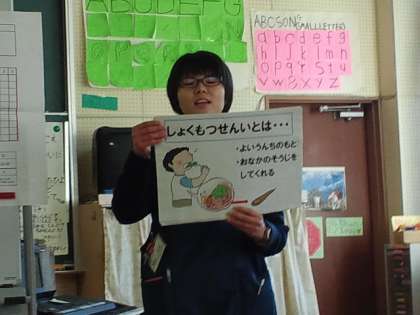 ABCDEFG
ABC SONG SMALL LETTERS
a b c d e f g
h i j k l m n
o p q r s t u
v w x y z
しょくもつせんいとは・・・
・よいうんちのもと
・おなかのそうじを
してくれる